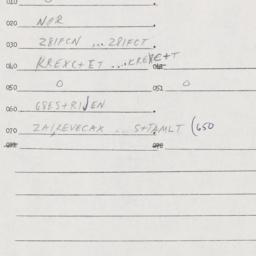 010
020 NPR
030 281FCN ... 281FCT
040 KREXC+ET ... KREXE+T
050 0 051 0
060 G8ES+RIVEN
070 ZAIREVECAX ... S+TAMLT (650